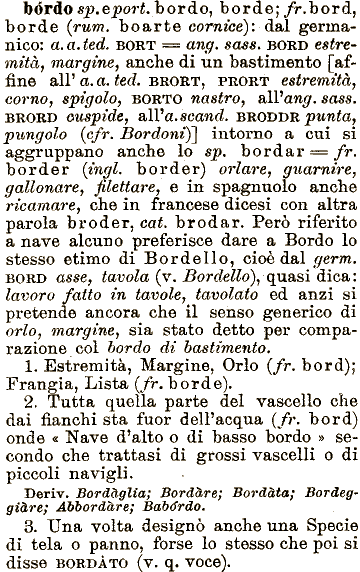 bórdo sp. e port. bordo, borde; fr. bord,
borde (rum. boarte cornice): dal germa-
nico: a.a.ted. BORT = ang. sass. BORD estre-
mità, margine, anche di un bastimento [af-
fine all' a.a.ted. BRORT, PRORT estremità,
corno, spigolo, BORTO nastro, all'ang. sass.
BRORD cuspide, all'a.scand. BRODDR punta,
pungolo (cfr. Bordoni)] intorno a cui si
aggruppano anche lo sp. bordar = fr.
border (ingl. border) orlare, guarnire,
gallonare, filettare, e in spagnuolo anche
ricamare, che in francese dicesi con altra
parola broder, cat. brodar. Però riferito
a nave alcuno preferisce dare a Bordo lo
stesso etimo di Bordello, cioè dal germ.
BORD asse, tavola (v. Bordello), quasi dica:
lavoro fatto in tavole, tavolato ed anzi si
pretende ancora che il senso generico di
orlo, margine, sia stato detto per compa-
razione col bordo di bastimento.
1. Estremità, Margine, Orlo (fr. bord);
Frangia, Lista (fr. borde).
2. Tutta quella parte del vascello che
dai fianchi sta fuor dell'acqua (fr. bord)
onde « Nave d'alto o di basso bordo » se-
condo che trattasi di grossi vascelli o di
piccoli navigli.
Deriv. Bordàglia; Bordàre; Bordàta; Bordeg-
giàre; Abbordàre; Babórdo.
3. Una volta designò anche una Specie
di tela o panno, forse lo stesso che poi si
disse BORDÀTO (v. q. voce).